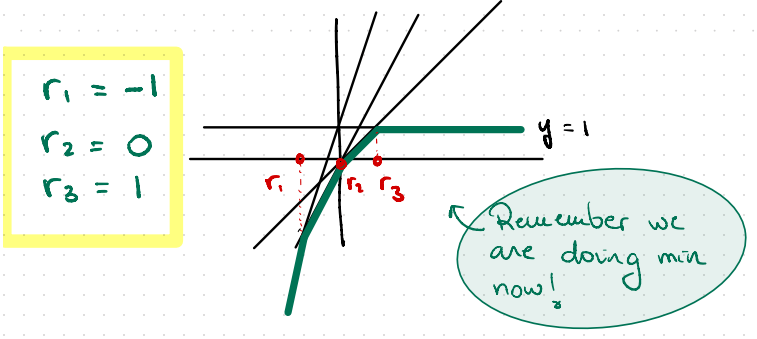 r₁ = -1
r₂ = 0
r₃ = 1
y = 1
r₁
r₂
r₃
Remember we
are doing min
now!